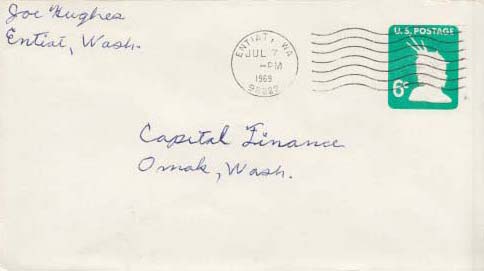 Joe Hughes
Entiat, Wash.
ENTIAT, WA
JUL 7
-PM
1969
98822
U.S. POSTAGE
6c
Capital Finance
Omak, Wash.